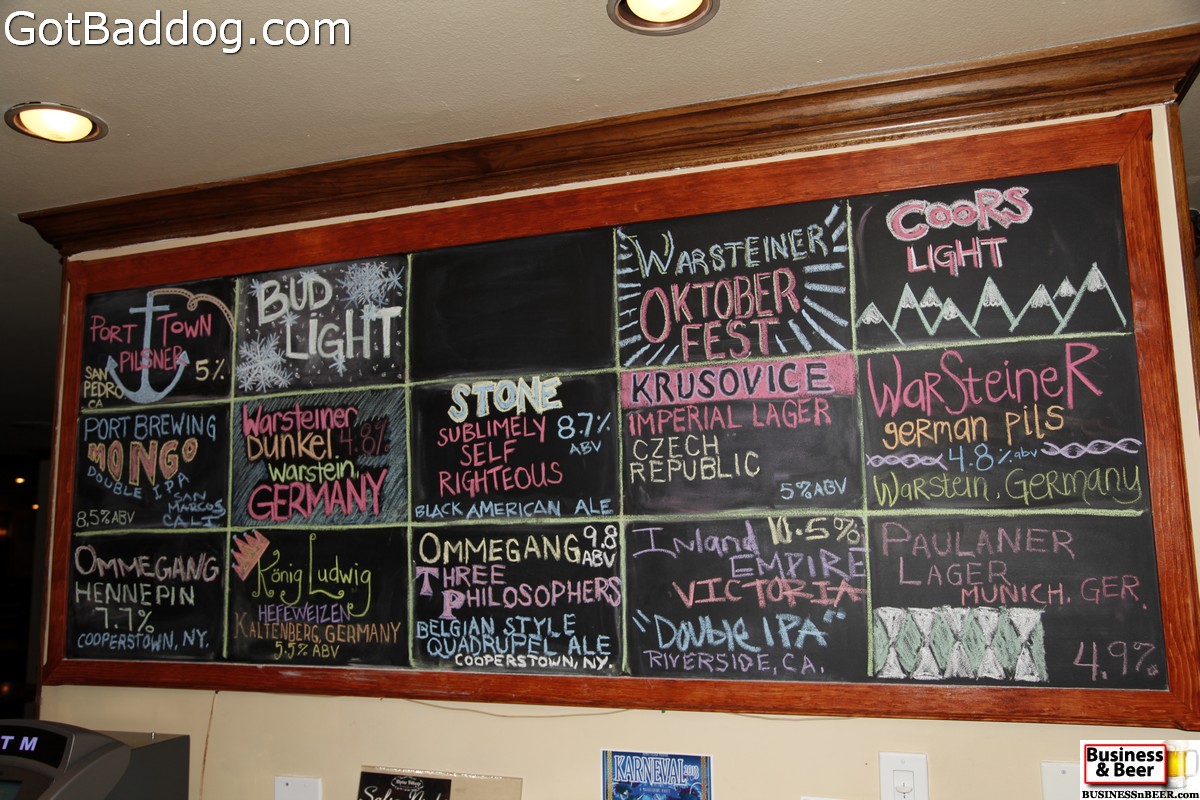 GotBaddog.com
PORT TOWN
PILSNER
SAN
PEDRO
CA
5%
BUD
LIGHT
WARSTEINER
OKTOBER
FEST
COORS
LIGHT
PORT BREWING
MONGO
DOUBLE IPA
SAN
MARCOS
CALI
8.5% ABV
Warsteiner
Dunkel 4.8%
warstein,
GERMANY
STONE
SUBLIMELY
SELF
RIGHTEOUS
8.7%
ABV
BLACK AMERICAN ALE
KRUSOVICE
IMPERIAL LAGER
CZECH
REPUBLIC
5% ABV
WarSteineR
german pils
4.8% abv
Warstein, Germany
OMMEGANG
HENNEPIN
7.7%
COOPERSTOWN, NY.
König Ludwig
HEFEWEIZEN
KALTENBERG, GERMANY
5.5% ABV
OMMEGANG 9.8
ABV
THREE
PHILOSOPHERS
BELGIAN STYLE
QUADRUPEL ALE
COOPERSTOWN, NY.
Inland 11.5%
EMPIRE
VICTORIA
"Double IPA"
RIVERSIDE, CA.
PAULANER
LAGER
MUNICH, GER.
4.9%
TM
KARNEVAL 2013
Business
& Beer
BUSINESSnBEER.com